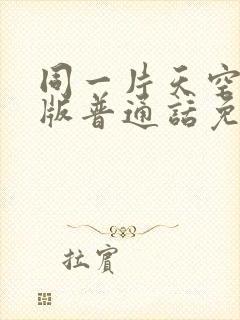 同一片天空
版普通话免
拉宾